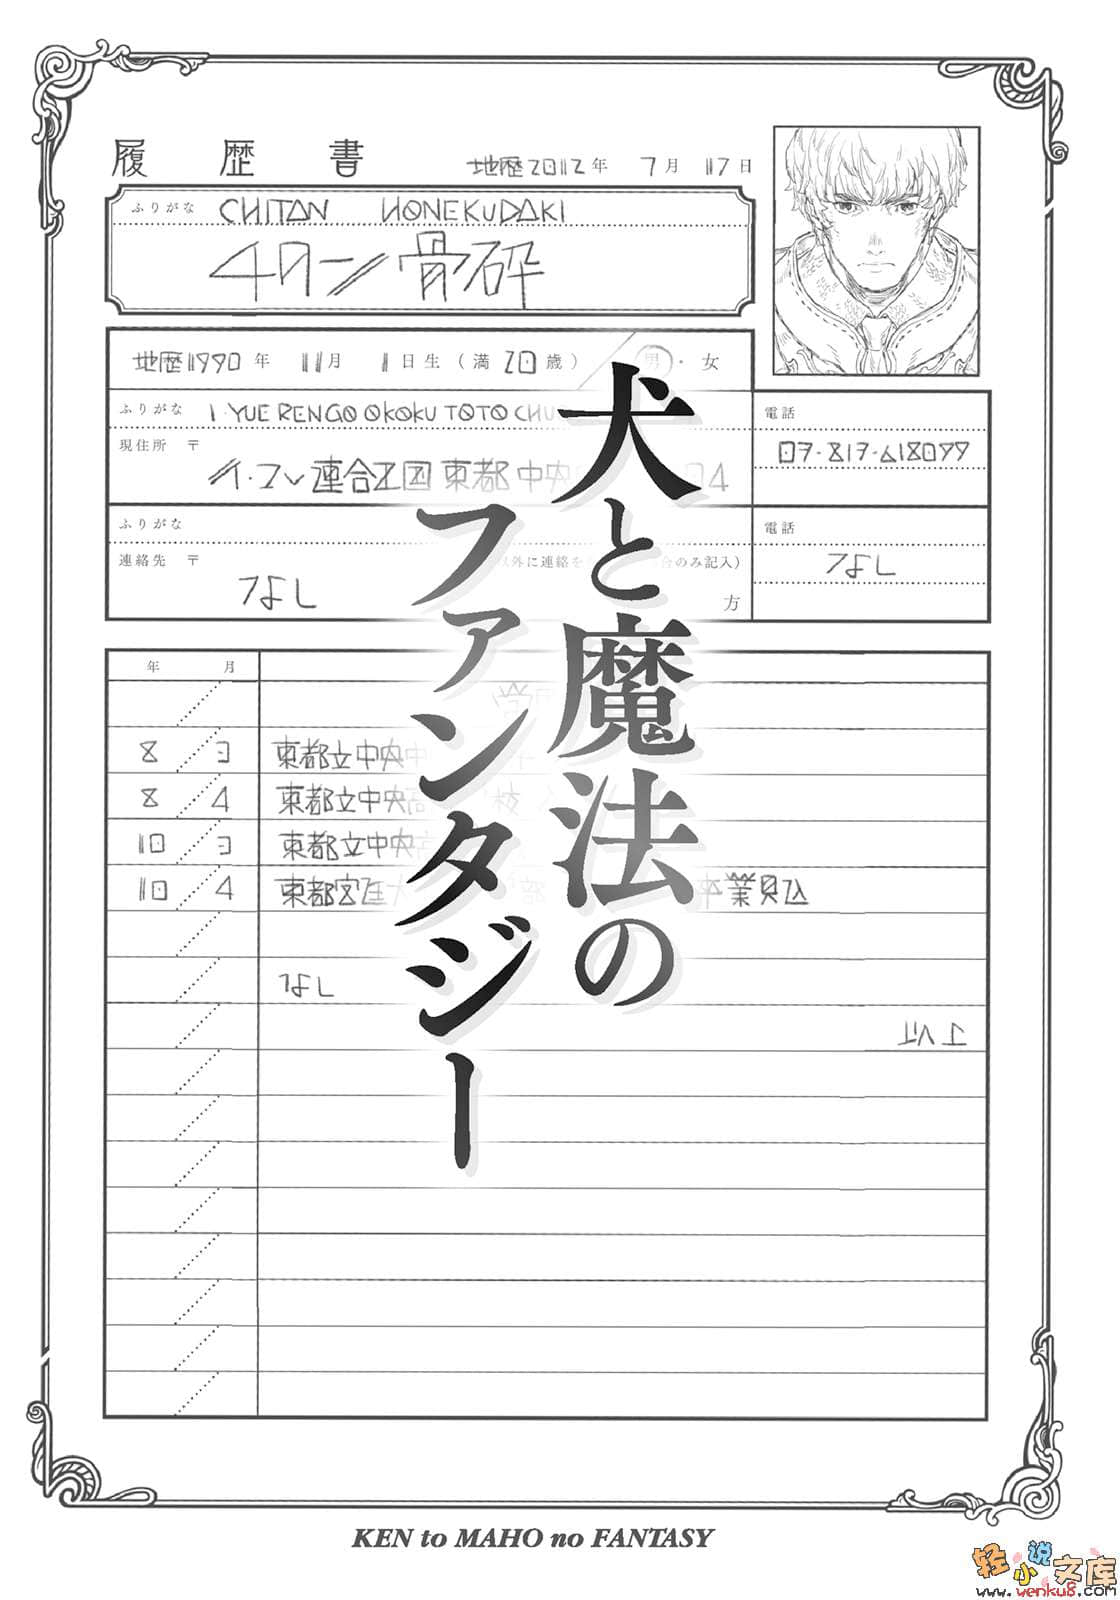 履歴書
地歴2012年 7月 17日
ふりがな CHITAN HONEKUDAKI
チタン骨砕
地歴1990年 11月 1日生（満20歳） 男・女
ふりがな I・YUE RENGO OKOKU TOTO CHU
電話
07-817-618099
現住所 〒
イ・ユレ連合王国東都中央
ふりがな
電話
連絡先 〒
以外に連絡を 合のみ記入）
なし
方
なし
年 月
8 3 東都立中央中
8 4 東都立中央高 校
10 3 東都立中央高
10 4 東都宮廷大 部 卒業見込
なし
以上
犬と魔法の
ファンタジー
KEN to MAHO no FANTASY
轻小说文库
www.wenku8.com